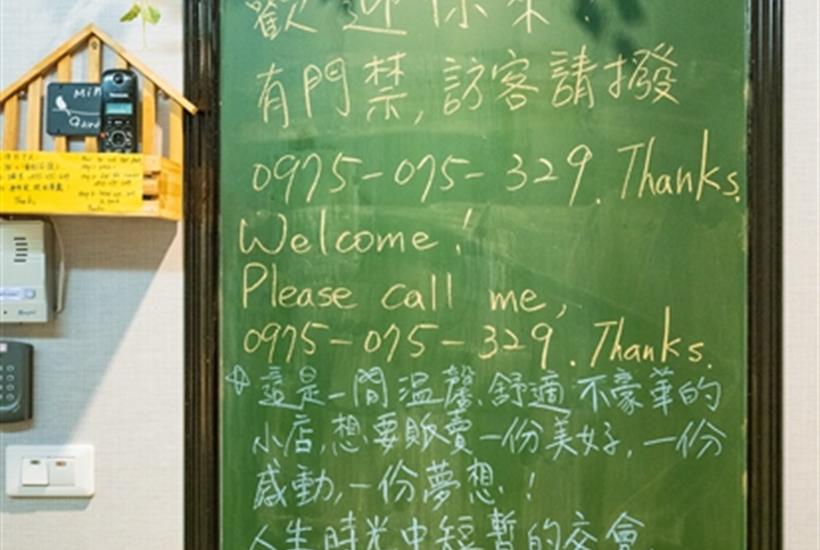 歡迎你來!
有門禁,訪客請撥
0975-075-329.Thanks.
Welcome!
Please call me,
0975-075-329.Thanks.
這是一間溫馨.舒適不豪華的
小店,想要販賣一份美好,一份
感動,一份夢想.!
人生時光中短暫的交會